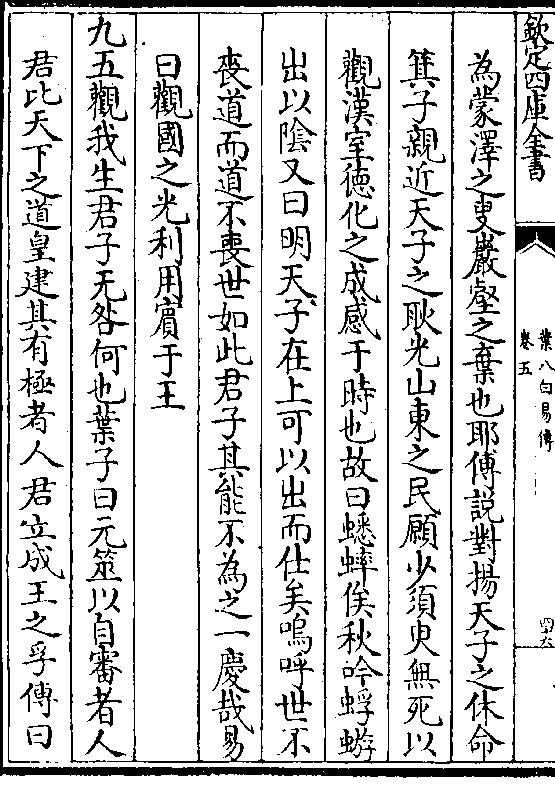 欽定四庫全書
葉八白易傳
卷五
四六
為蒙澤之叟巖壑之棄也耶傅說對揚天子之休命
箕子親近天子之耿光山東之民願少須臾無死以
觀漢室德化之成感于時也故曰蟋蟀俟秋吟蜉蝣
出以陰又曰明天子在上可以出而仕矣嗚呼世不
喪道而道不喪世如此君子其能不為之一慶哉易
曰觀國之光利用賓于王
九五觀我生君子无咎何也葉子曰元筮以自審者人
君比天下之道皇建其有極者人君立成王之孚傳曰